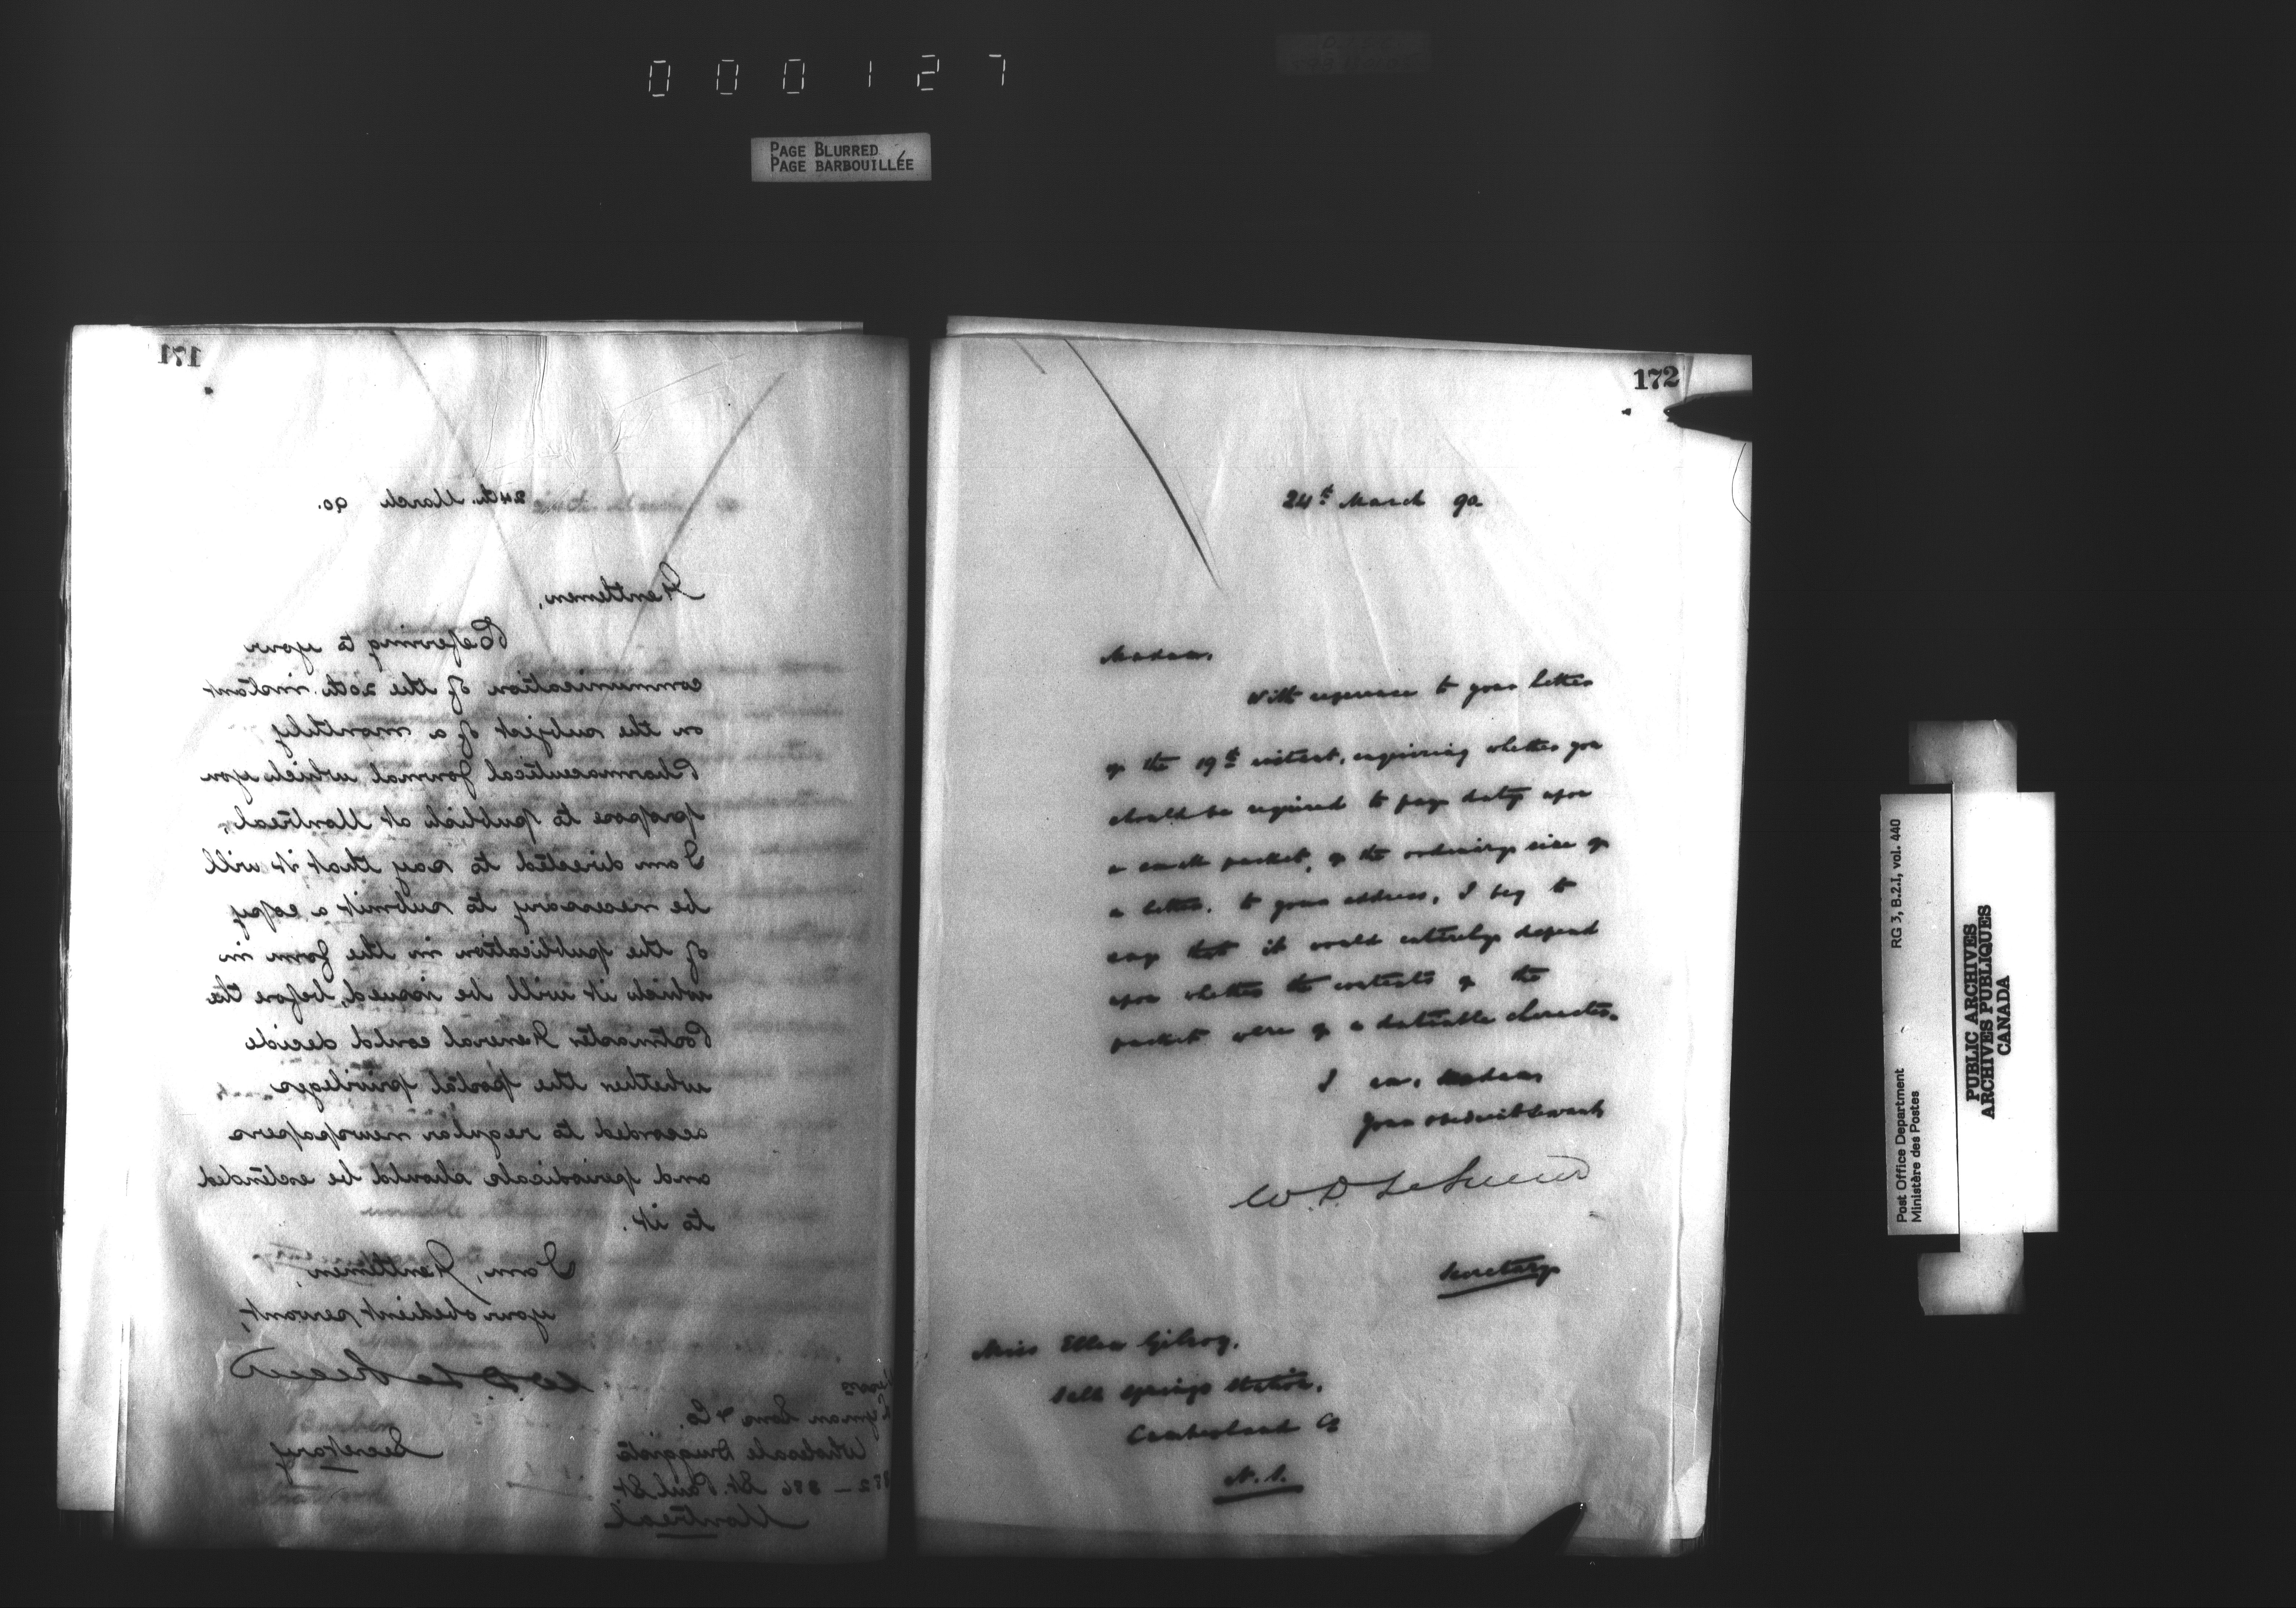 000127
PAGE BLURRED
PAGE BARBOUILLÉE
171
24th. March 90.
Gentlemen,
Referring to your
communication of the 20th. instant
on the subject of a monthly
Pharmaceutical Journal which you
propose to publish at Montreal,
I am directed to say that it will
be necessary to submit a copy
of the publication in the form in
which it will be issued, before the
Postmaster General could decide
whether the postal privileges
accorded to regular newspapers
and periodicals should be extended
to it.
I am, Gentlemen,
your obedient servant,
W. D. LeSueur
Secretary
Lyman Sons & Co.
Wholesale Druggists
St. Paul St.
Montreal
172
24th March 90
Madam,
With reference to your letter
of the 19th instant, enquiring whether you
should be required to pay duty upon
a small packet, of the ordinary size of
a letter, to your address, I beg to
say that it would entirely depend
upon whether the contents of the
packet were of a dutiable character.
I am, Madam,
Your obedient servant
W. D. LeSueur
Secretary
Miss Ellen Gilroy,
Salt Springs Station,
Cumberland Co
N.S.
Post Office Department RG 3, B.2.I, vol. 440
Ministère des Postes
PUBLIC ARCHIVES
ARCHIVES PUBLIQUES
CANADA